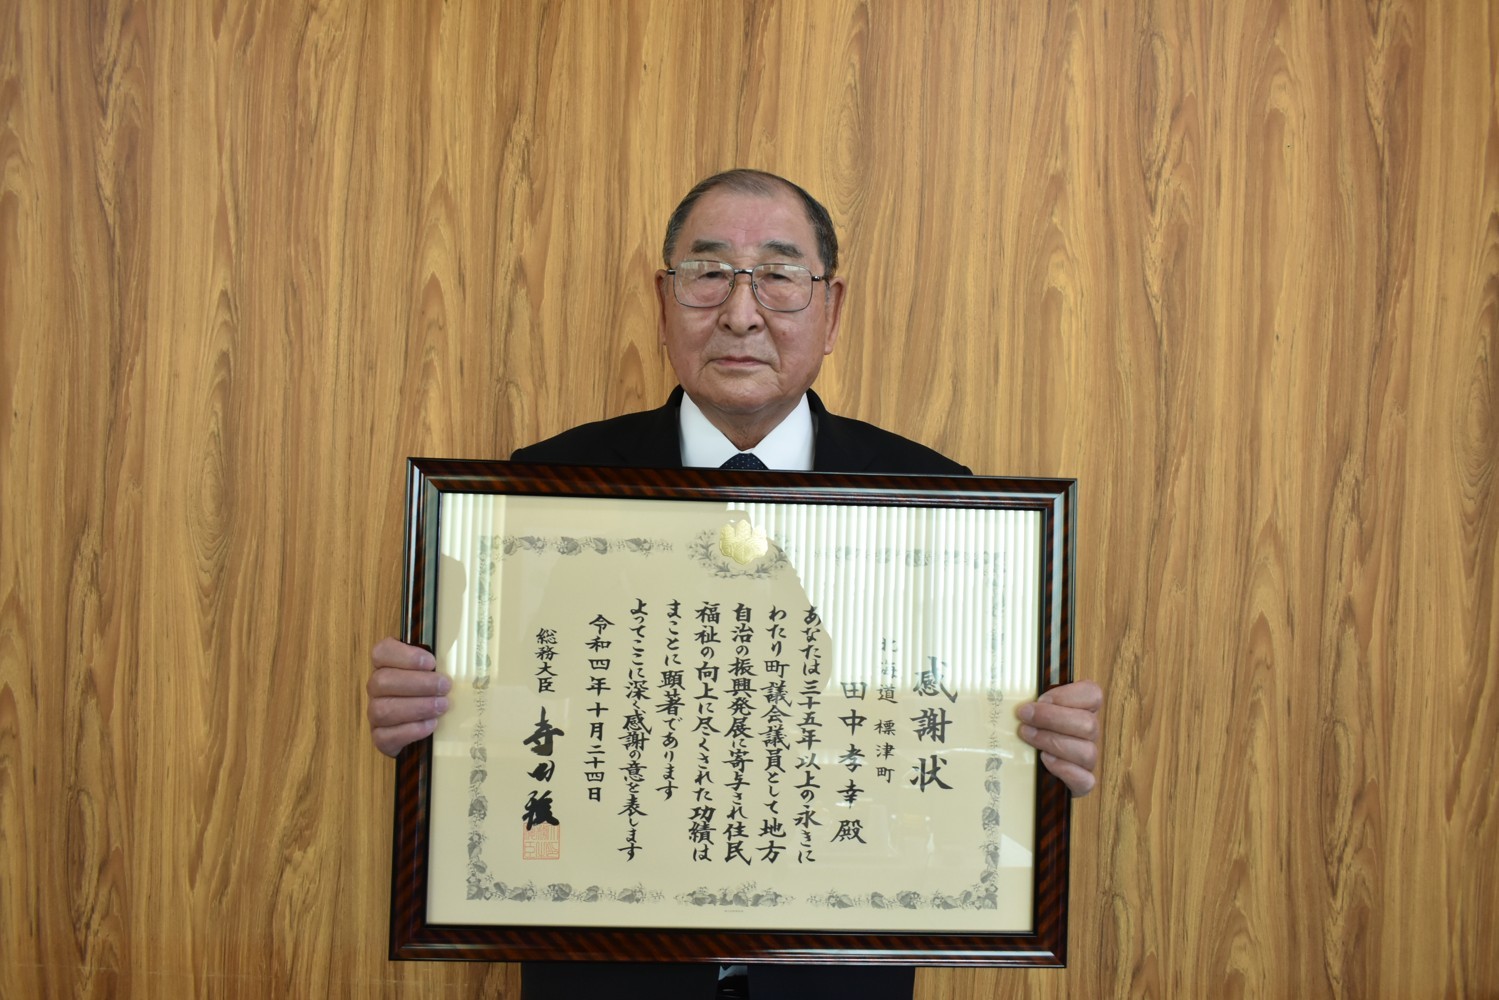 感謝状
北海道 標津町
田中孝幸殿
あなたは三十五年以上の永きに
わたり町議会議員として地方
自治の振興発展に寄与され住民
福祉の向上に尽くされた功績は
まことに顕著であります
よってここに深く感謝の意を表します
令和四年十月二十四日
総務大臣 寺田稔